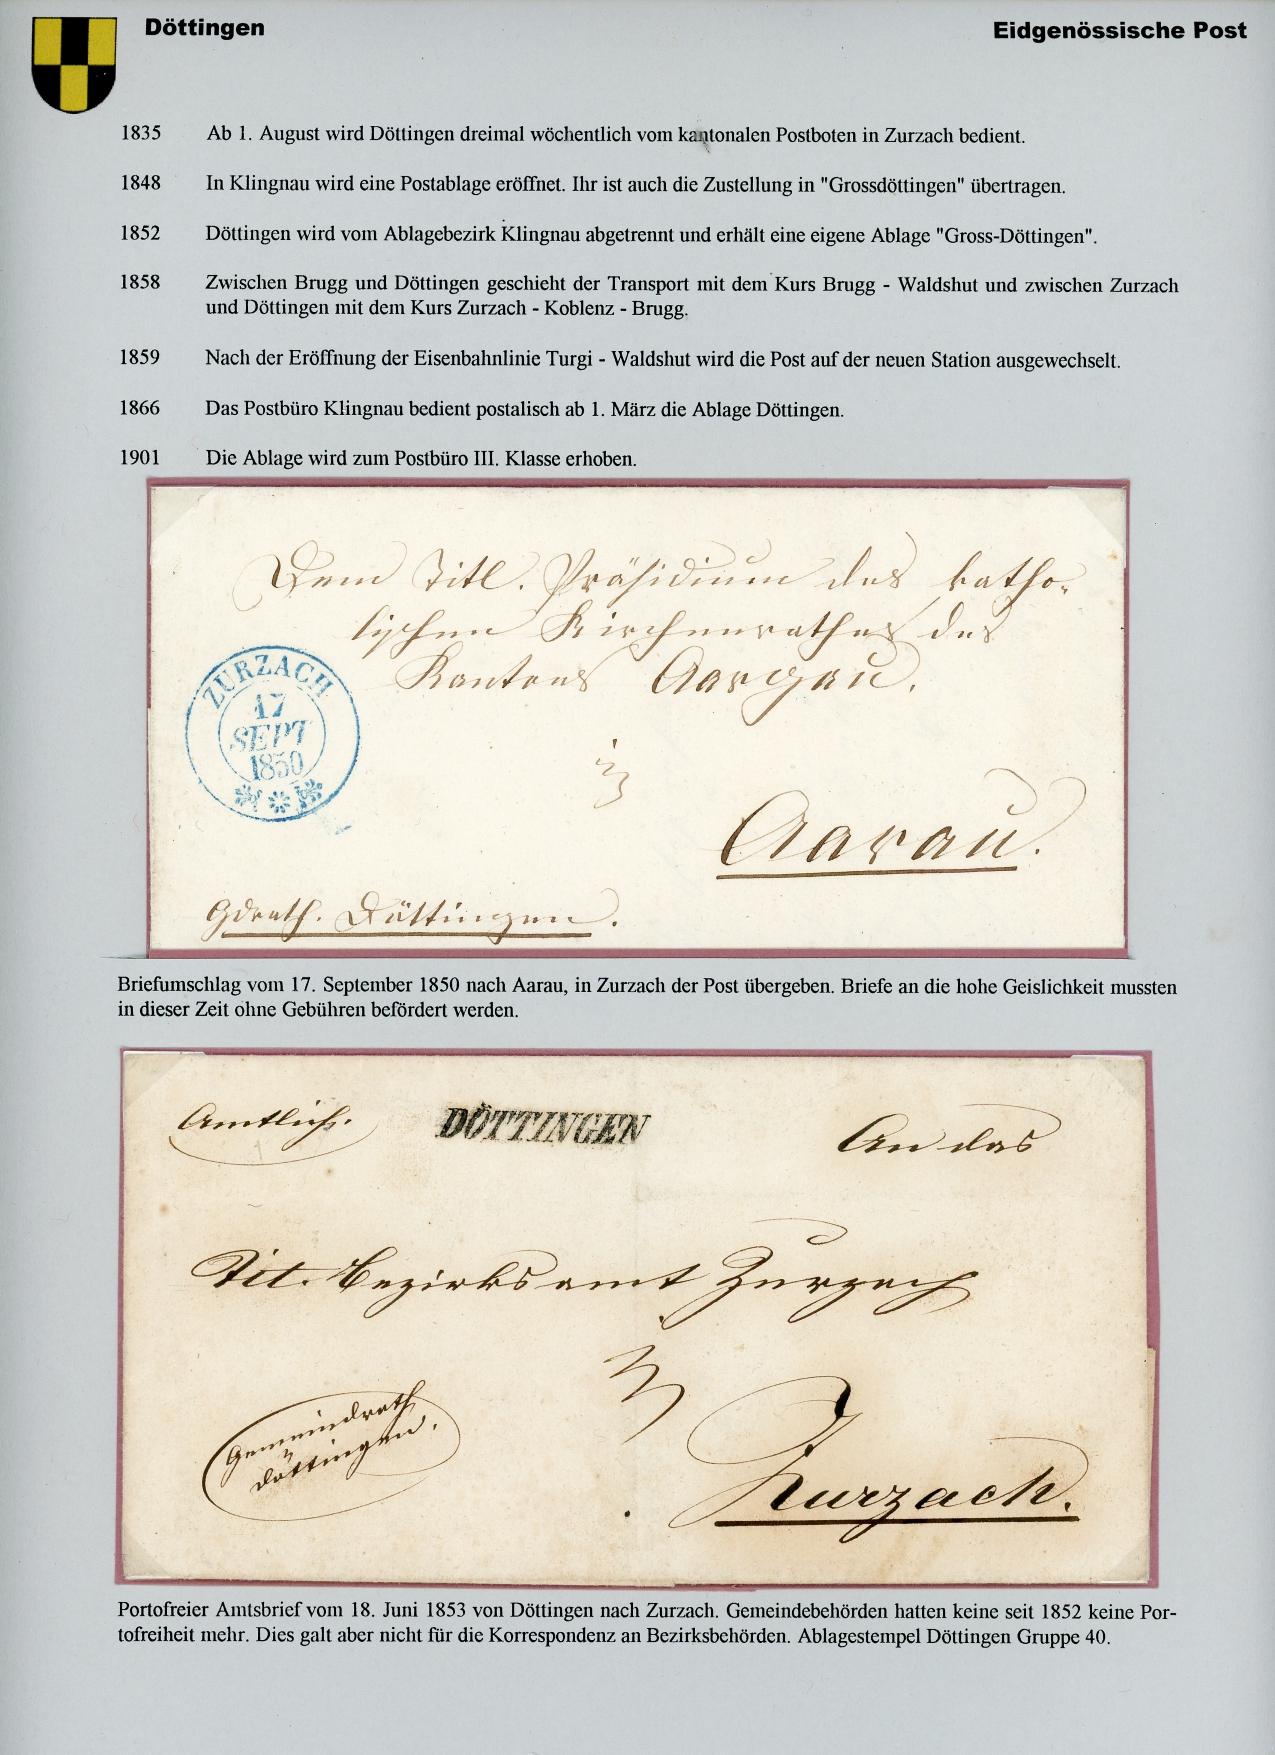 Döttingen
Eidgenössische Post
1835 Ab 1. August wird Döttingen dreimal wöchentlich vom kantonalen Postboten in Zurzach bedient.
1848 In Klingnau wird eine Postablage eröffnet. Ihr ist auch die Zustellung in "Grossdöttingen" übertragen.
1852 Döttingen wird vom Ablagebezirk Klingnau abgetrennt und erhält eine eigene Ablage "Gross-Döttingen".
1858 Zwischen Brugg und Döttingen geschieht der Transport mit dem Kurs Brugg - Waldshut und zwischen Zurzach
und Döttingen mit dem Kurs Zurzach - Koblenz - Brugg.
1859 Nach der Eröffnung der Eisenbahnlinie Turgi - Waldshut wird die Post auf der neuen Station ausgewechselt.
1866 Das Postbüro Klingnau bedient postalisch ab 1. März die Ablage Döttingen.
1901 Die Ablage wird zum Postbüro III. Klasse erhoben.
Dem Titl. Präsidium des katho-
lischen Kirchenrathes des
Kantons Aargau.
ZURZACH
17
SEPT
1850
in
Aarau.
Gdrath. Döttingen.
Briefumschlag vom 17. September 1850 nach Aarau, in Zurzach der Post übergeben. Briefe an die hohe Geislichkeit mussten
in dieser Zeit ohne Gebühren befördert werden.
Amtlich.
DÖTTINGEN
An das
Tit. Bezirksamt Zurzach
in
Gemeindrath
Döttingen.
Zurzach.
Portofreier Amtsbrief vom 18. Juni 1853 von Döttingen nach Zurzach. Gemeindebehörden hatten keine seit 1852 keine Por-
tofreiheit mehr. Dies galt aber nicht für die Korrespondenz an Bezirksbehörden. Ablagestempel Döttingen Gruppe 40.